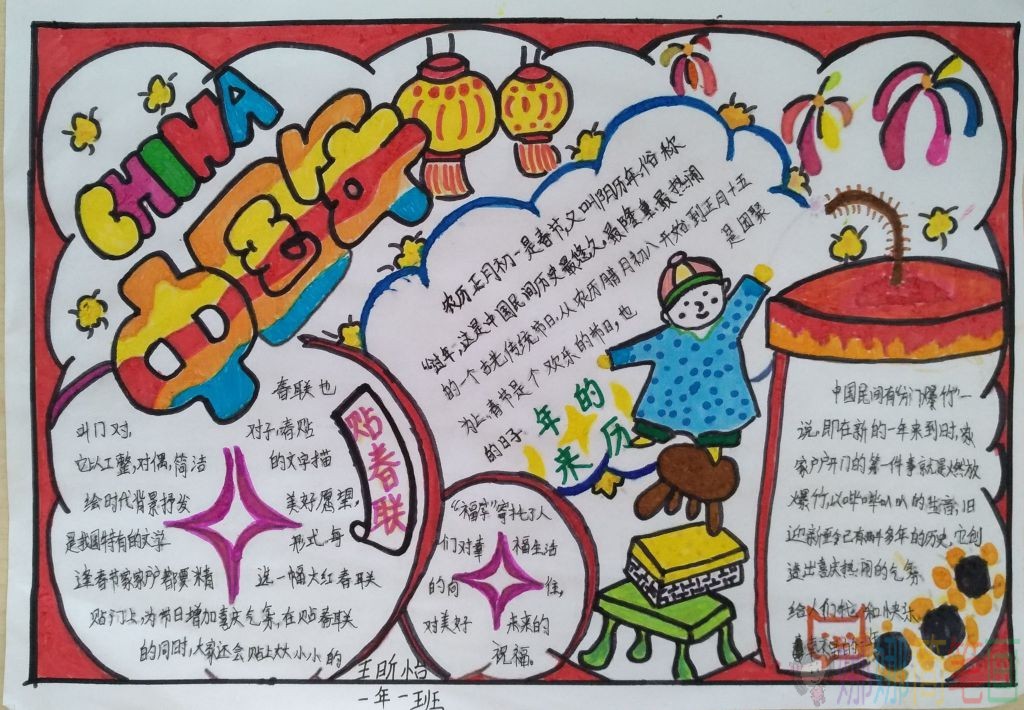 CHINA
中国年
农历正月初一是春节,又叫阴历年,俗称
"过年",这是中国民间历史最悠久、最隆重、最热闹
的一个古老传统节日,从农历腊月初八开始到正月十五
为止,春节是个欢乐的节日,也是团聚
的日子
年的
来历
春联也
叫门对, 对子,春贴
它以工整,对偶,简洁 的文字描
绘时代背景抒发 美好愿望,
是我国特有的文学 形式,每
逢春节家家户户都要精 选一幅大红春联
贴门上,为节日增加喜庆气氛,在贴春联
的同时,大家还会贴上大大小小的
贴春联
"福字"寄托了人
们对幸 福生活
的向 往,
对美好 未来的
祝福。
中国民间有"开门爆竹"一
说,即在新的一年来到日时,家
家户户开门的第一件事就是燃放
爆竹,以哔哔叭叭的 旧
迎新 已有两千多年的历史,它创
造出喜庆热闹的气氛,
给人们 和快乐
王昕怡
一年一班